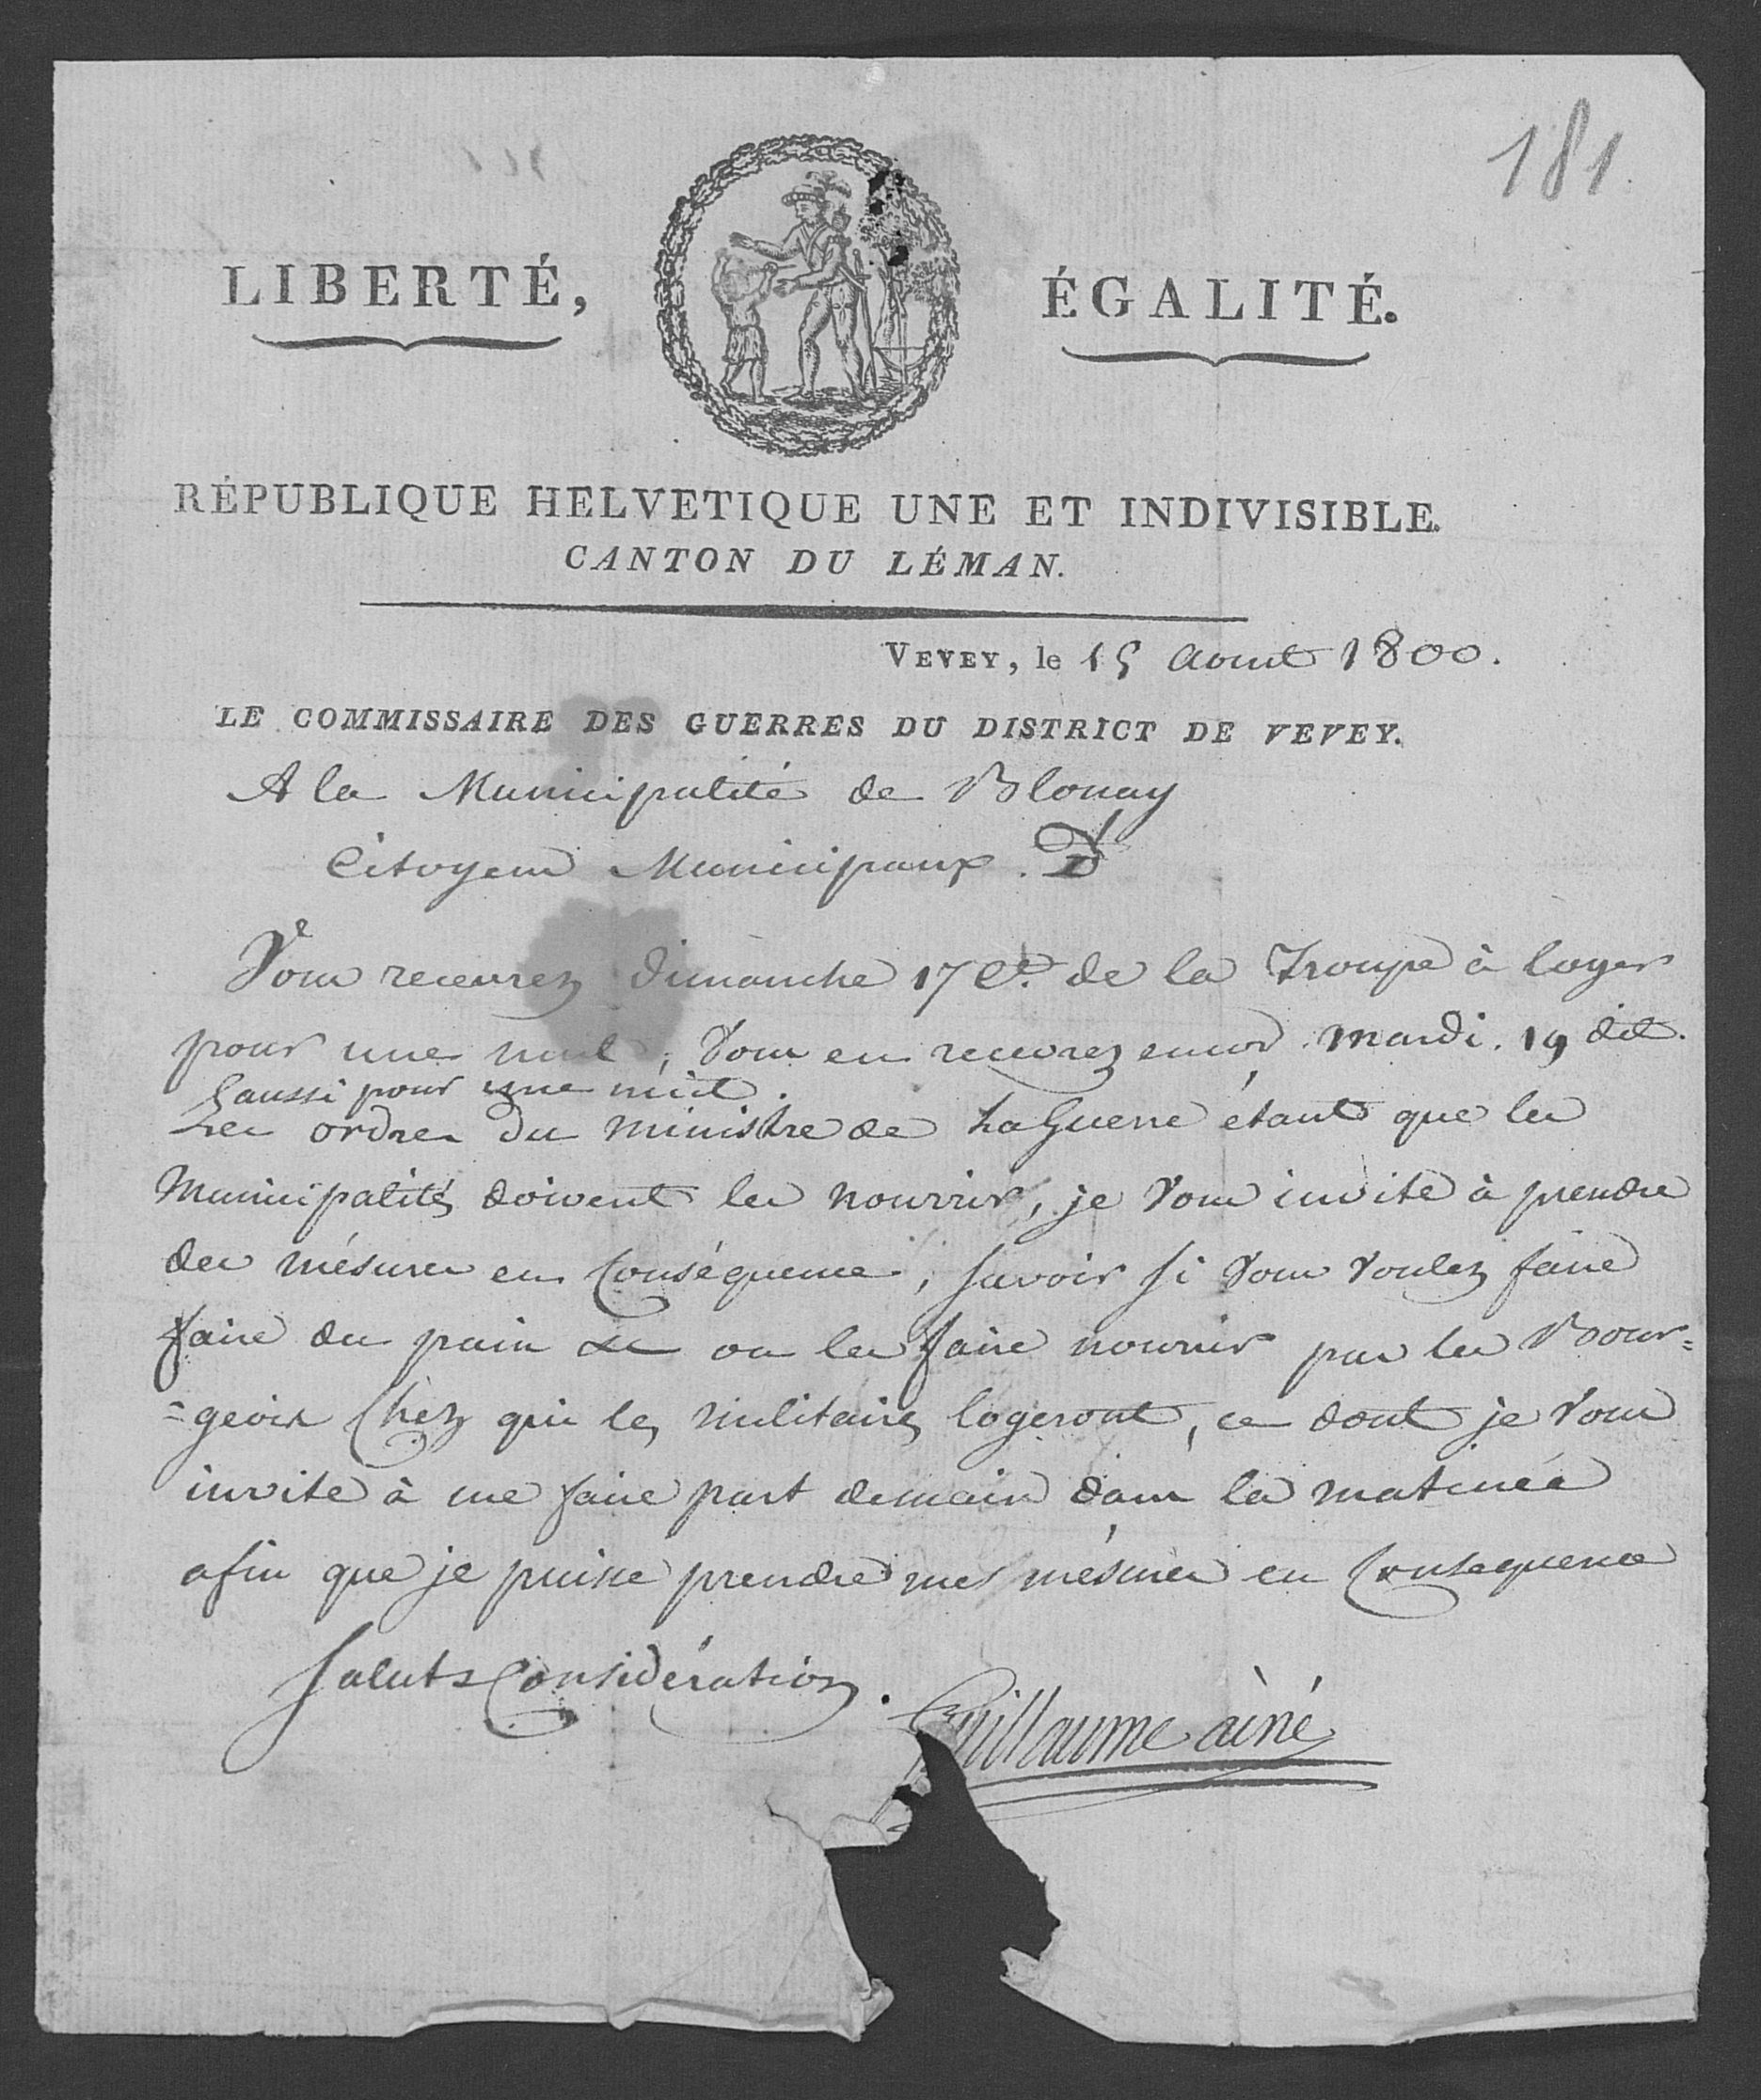 181.
LIBERTÉ, ÉGALITÉ.
RÉPUBLIQUE HELVETIQUE UNE ET INDIVISIBLE.
CANTON DU LÉMAN.
VEVEY, le 15 Aout 1800.
LE COMMISSAIRE DES GUERRES DU DISTRICT DE VEVEY.
A la Municipalité de Blonay
Citoyens Municipaux.
Vous recevrez dimanche 17 Ct. de la Troupe à loger
pour une nuit, Vous en recevrez encor mardi. 19 dit.
aussi pour une nuit.
Les ordres du ministre de La Guerre étant que les
Municipalités doivent les nourrir, je Vous invite à prendre
des mésures en Conséquence, savoir si Vous Voulez faire
faire du pain &c ou les faire nourrir par les Bour=
=geois Chez qui les militaires logeront, ce dont je Vous
invite à me faire part demain dans la matinée
afin que je puisse prendre mes mésures en Consequence
Salut & Considération.
Guillaume ainé